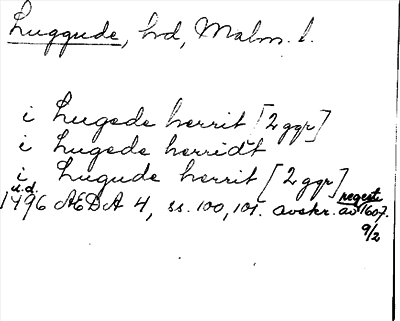 Luggude, hd, Malm. l.
i Lugede herrit [2 ggr]
i Lugede herridt
i Lugude herrit [2 ggr]
u.d. regest
1496 AEDA 4, ss. 100, 101. avskr. av 1607.
9/2